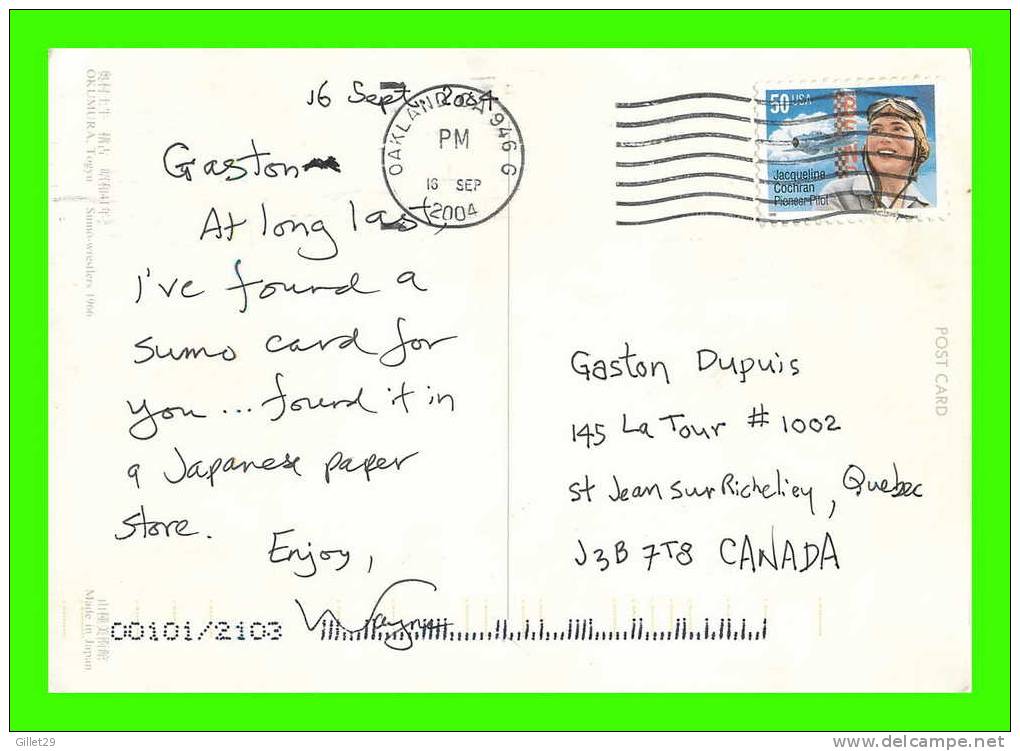 16 Sept 2004
Gaston
At long last,
I've found a
sumo card for
you... found it in
a Japanese paper
store.
Enjoy,
Wayne
OAKLAND CA 946 G
PM
16 SEP
2004
50 USA
Jacqueline
Cochran
Pioneer Pilot
Gaston Dupuis
145 La Tour # 1002
St Jean sur Richeliey, Quebec
J3B 7T8 CANADA
POST CARD
OKUMURA, Togyu Sumo-wrestlers 1966
山種美術館
Made in Japan
00101/2103
Gillet29
www.delcampe.net